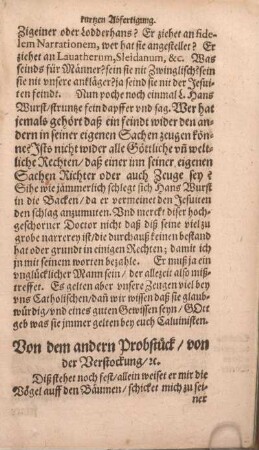 kurtzen Abfertigung.
Zigeiner oder Lodderhans? Er ziehet an fide-
lem Narrationem, wer hat sie angestellet? Er
ziehet an Lauatherum, Sleidanum, &c. Was
seinds für Männer? sein sie nit Zwinglisch? sein
sie nit vnsere ankläger? ja seind sie nit der Jesui-
ten feindt. Nun poche noch einmal L. Hans
Wurst/ struntze sein dapffer vnd sag. Wer hat
jemals gehört daß ein feindt wider den an-
dern in seiner eigenen Sachen zeugen kön-
ne? Ists nicht wider alle Göttliche vñ welt-
liche Rechten/ daß einer inn seiner eigenen
Sachen Richter oder auch Zeuge sey?
Sihe wie jämmerlich schlegt sich Hans Wurst
in die Backen/ da er vermeinet den Jesuiten
den schlag anzumuten. Vnd merckt diser hoch-
geschorner Doctor nicht daß diß seine viel zu
grobe narrerey ist/ die durchauß keinen bestand
hat oder grundt in einigen Rechten; damit ich
jn mit seinem worten bezahle. Er muß ja ein
vnglücklicher Mann sein/ der allezeit also miß-
treffet. Es gelten aber vnsere Zeugen viel bey
vns Catholischen/ dañ wir wissen daß sie glaub-
würdig/ vnd eines guten Gewissen seyn/ GOtt
geb was sie jmmer gelten bey euch Caluinisten.
Von dem andern Probstück/ von
der Verstockung/ ꝛc.
Diß stehet noch fest/ allein weiset er mir die
Vögel auff den Bäumen/ schicket mich zu sei-
ner